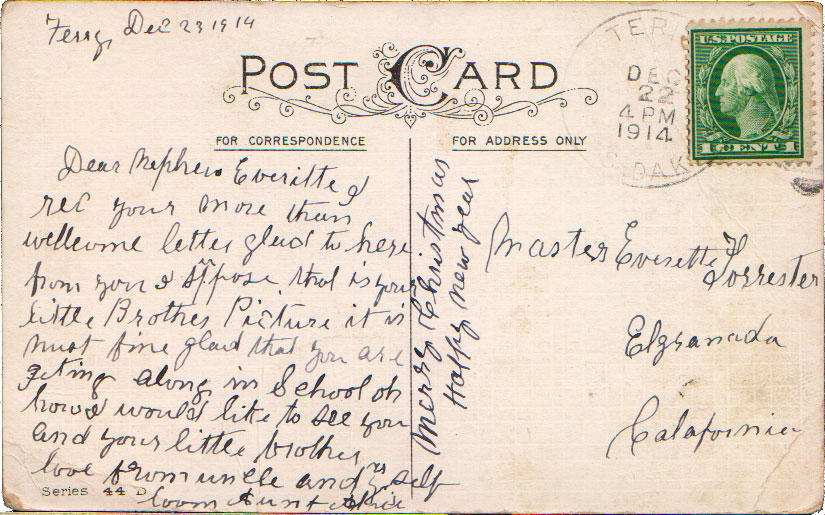 Ferry, Dec 23 1914
POST CARD
FOR CORRESPONDENCE
FOR ADDRESS ONLY
TER
DEC
22
4 PM
1914
DAK
U.S. POSTAGE
1 CENT 1
Dear Nephew Everitte I
rec your more than
wellcome letter glad to here
from you I suppose that is your
little Brothes Picture it is
must fine glad that you are
geting along in School oh
how I would like to see you
and your little brother
love from uncle and my self
from Aunt
Merry Christmas
Happy new year
Master Everette Forrester
Elgranada
Calafornia
Series 44 D